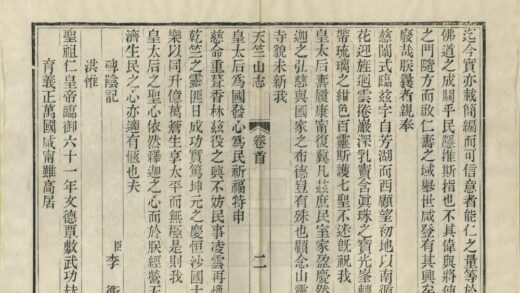 迄今實亦載簡編而可信意者能仁之量等於
佛道之成關乎民隱維斯指也不其偉與將使
之門隨方而啟仁壽之域舉世咸登有其興矣
廢哉朕義者親奉
慈闈式臨茲宇自芳湖而西顧望初地以南循
花迎旌迴雲捲巖深乳竇含眞珠之寶光峯轉
帶琉璃之紺色百靈斯護七聖不迷旣祝我
皇太后壽履康甯復冀凡茲庶民室家盈慶然
迦之弘慈與國家之布德豈有殊也顧念山
寺貌未新我
天竺山志 卷首 二
皇太后爲國發心爲民祈福特申
慈命重葺香林茲役之興不妨民事凌雲再
乾竺之靈匪日成功實篤坤元之慶恒沙國
樂以同升億萬蒼生享太平而無極是則我
皇太后之聖心依然釋迦之心而於朕經營
濟生民之心亦適有愜也夫
碑陰記 臣李衛
洪惟
聖祖仁皇帝臨御六十一年文德覃敷武功
育義正萬國咸甯雖高居